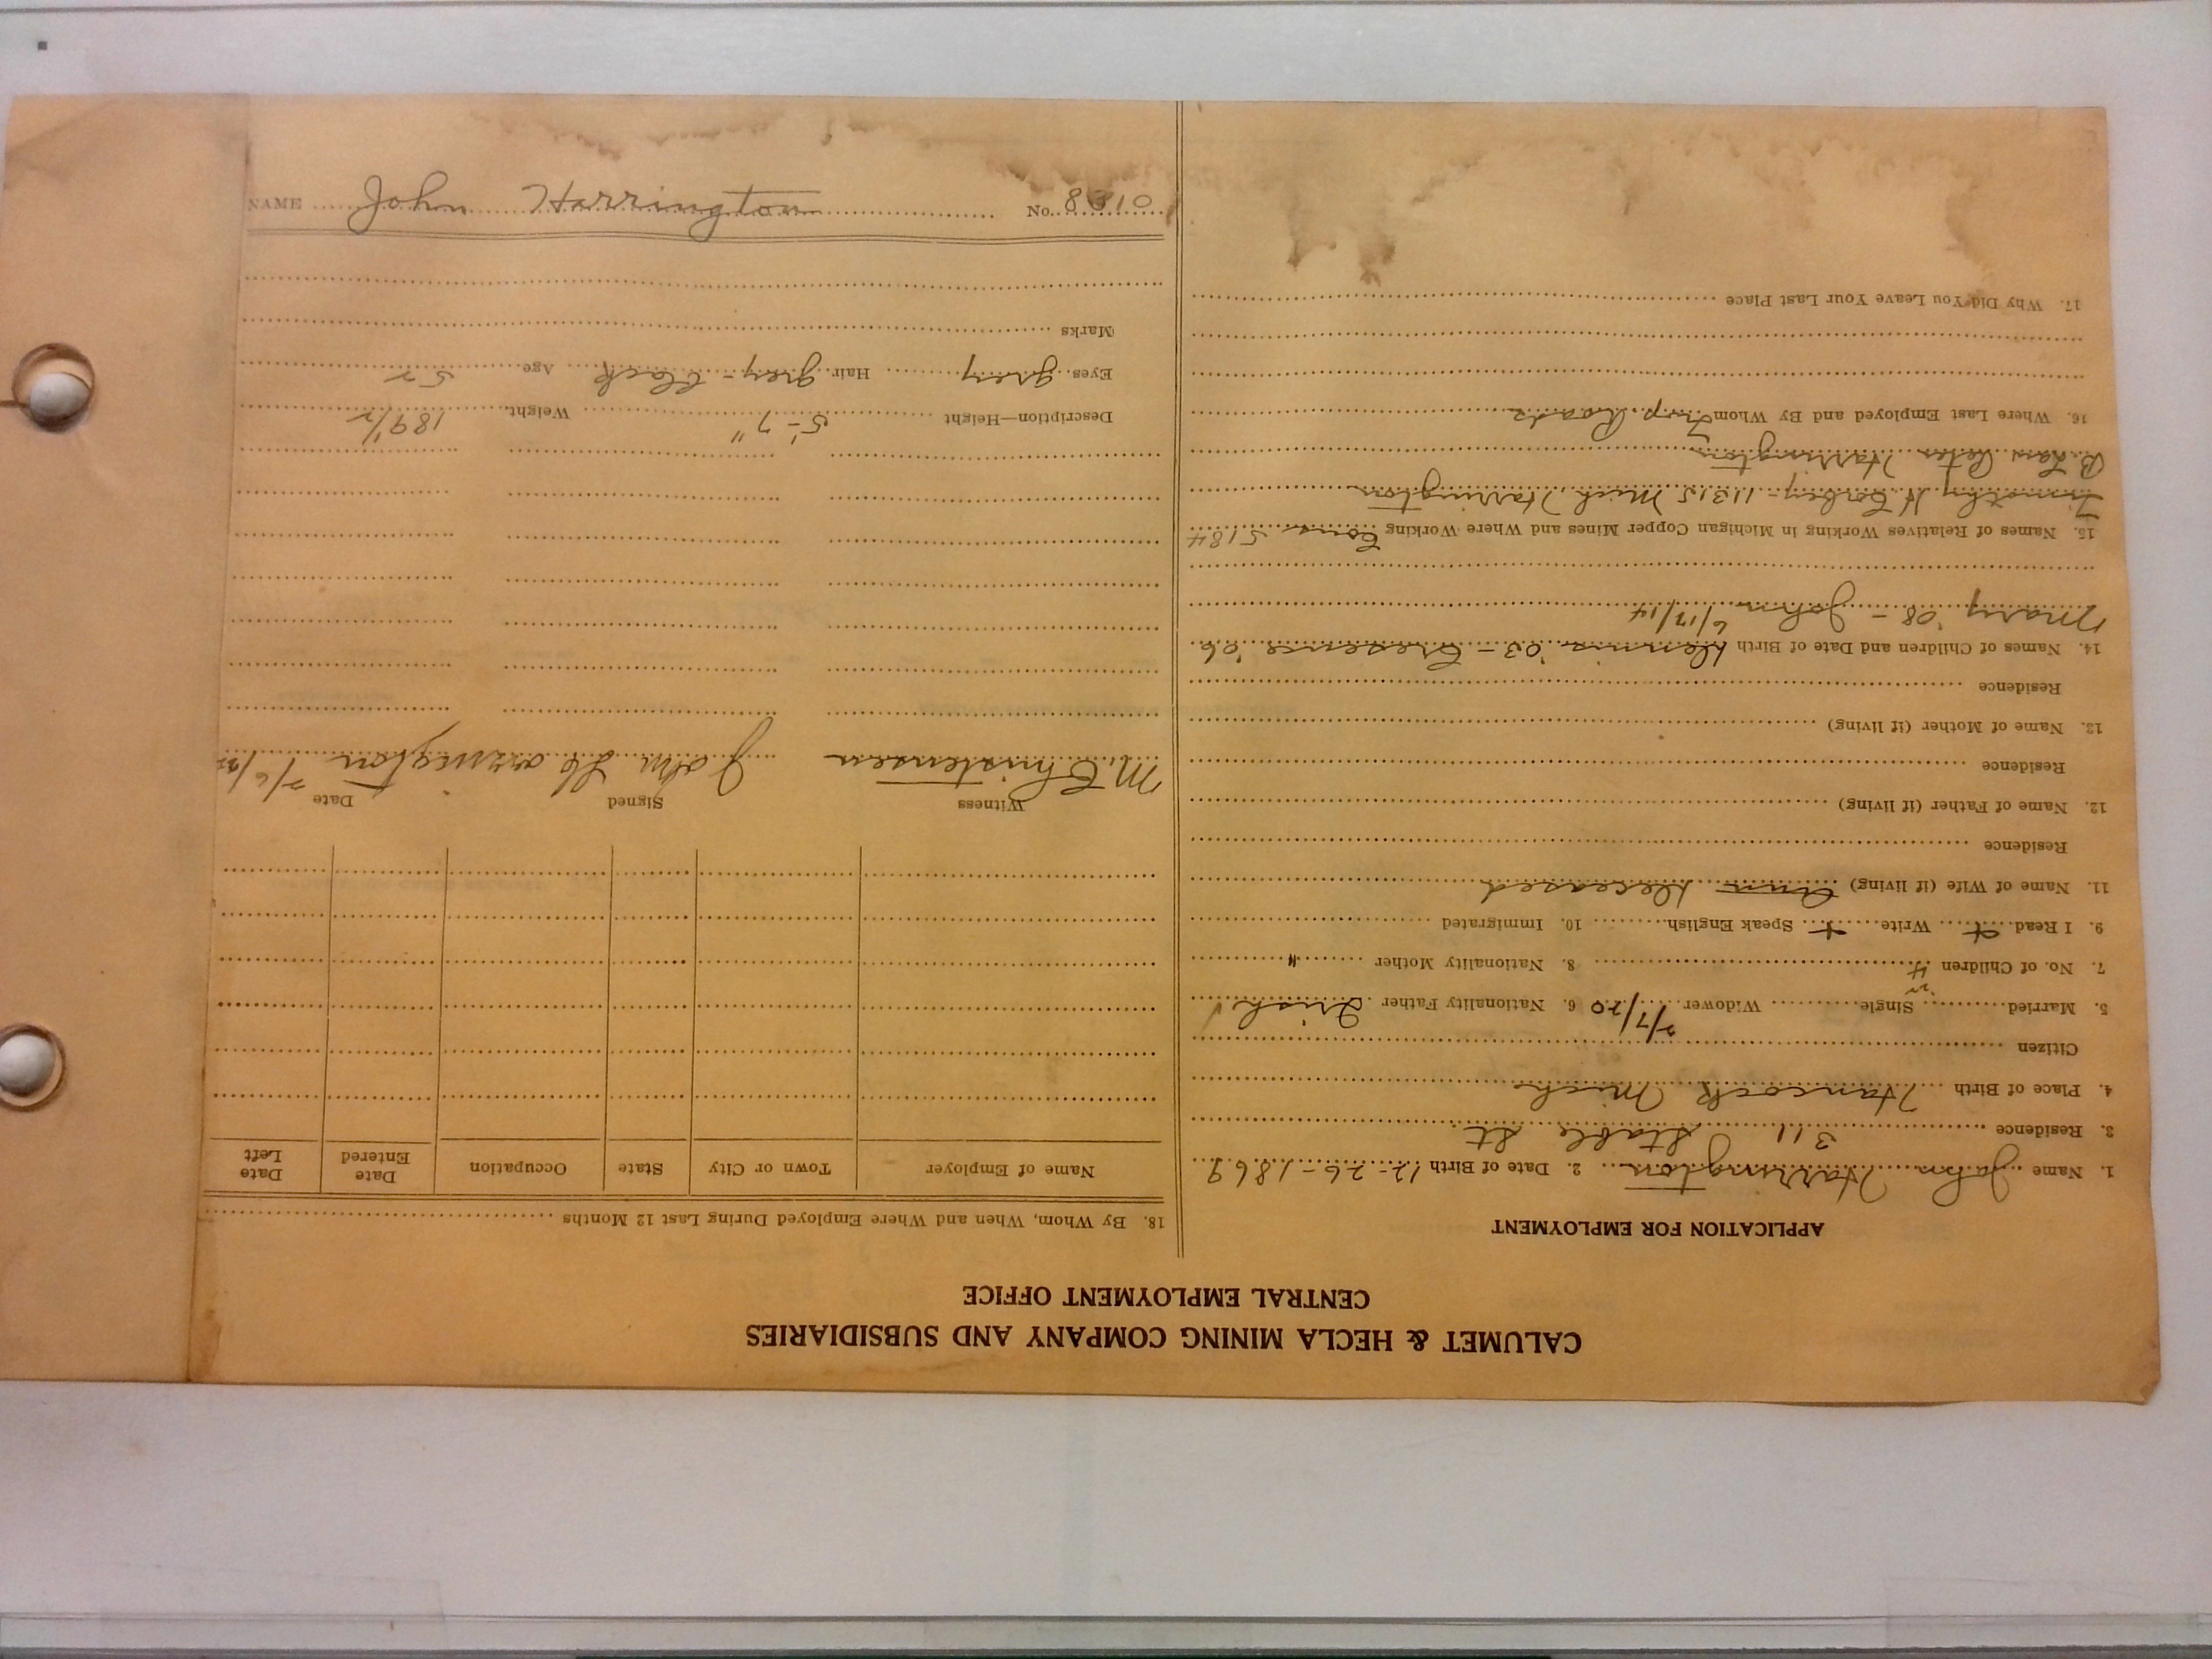 CALUMET & HECLA MINING COMPANY AND SUBSIDIARIES
CENTRAL EMPLOYMENT OFFICE
APPLICATION FOR EMPLOYMENT
1. Name John Harrington 2. Date of Birth 12-26-1869
3. Residence 311 Stable St
4. Place of Birth Hancock Mich
Citizen
5. Married Single Widower 2/7/20 6. Nationality Father Irish
7. No. of Children 4 8. Nationality Mother "
9. I Read Write Speak English 10. Immigrated
11. Name of Wife (if living) Ann Deceased
Residence
12. Name of Father (if living)
Residence
13. Name of Mother (if living)
Residence
14. Names of Children and Date of Birth Dennis '03 - '06
Mary '08 - John 6/17/14
15. Names of Relatives Working in Michigan Copper Mines and Where Working 5184
Timothy H 11315 Mich Harrington
Peter Harrington
16. Where Last Employed and By Whom Twp Roads
17. Why Did You Leave Your Last Place
18. By Whom, When and Where Employed During Last 12 Months
Name of Employer Town or City State Occupation Date Entered Date Left
Witness Signed Date
M. Christensen John Harrington 7/6/22
Description—Height 5'-7" Weight 189 1/2
Eyes grey Hair grey - black Age 52
Marks
NAME John Harrington No. 8310